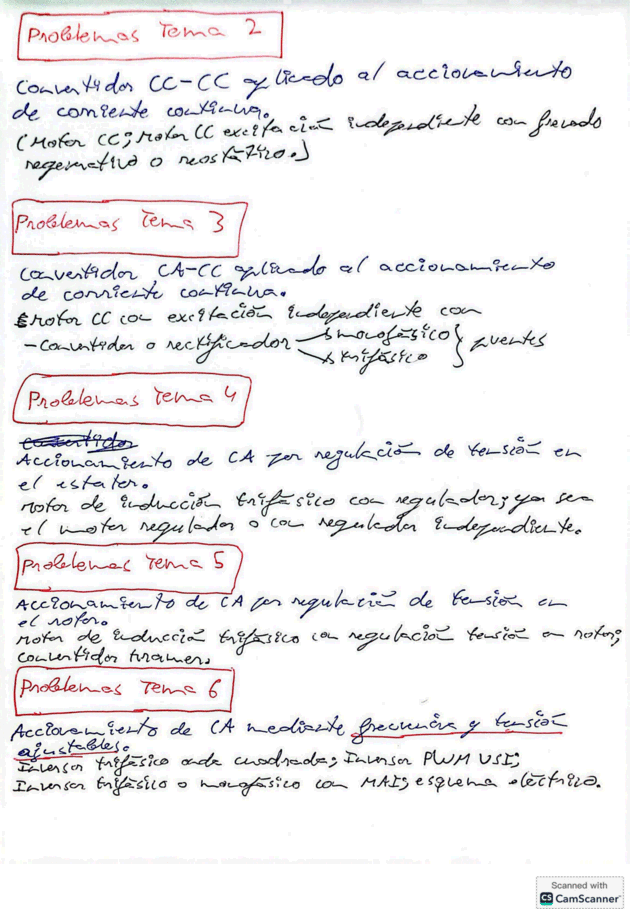 Problemas Tema 2
Convertidor CC-CC aplicado al accionamiento
de corriente continua.
(Motor CC; Motor CC excitación independiente con frenado
regenerativo o reostático.)
Problemas Tema 3
Convertidor CA-CC aplicado al accionamiento
de corriente continua.
Motor CC con excitación independiente con
- Convertidor o rectificador → monofásico } puentes
→ trifásico
Problemas Tema 4
Convertidor
Accionamiento de CA por regulación de tensión en
el estator.
Motor de inducción trifásico con regulador; ya sea
el motor regulador o con regulador independiente.
Problemas Tema 5
Accionamiento de CA por regulación de tensión en
el rotor.
Motor de inducción trifásico con regulación tensión en rotor;
convertidor Kramer.
Problemas Tema 6
Accionamiento de CA mediante frecuencia y tensión
ajustables.
Inversor trifásico onda cuadrada; Inversor PWM VSI;
Inversor trifásico o monofásico con MAI; esquema eléctrico.
Scanned with
CS CamScanner